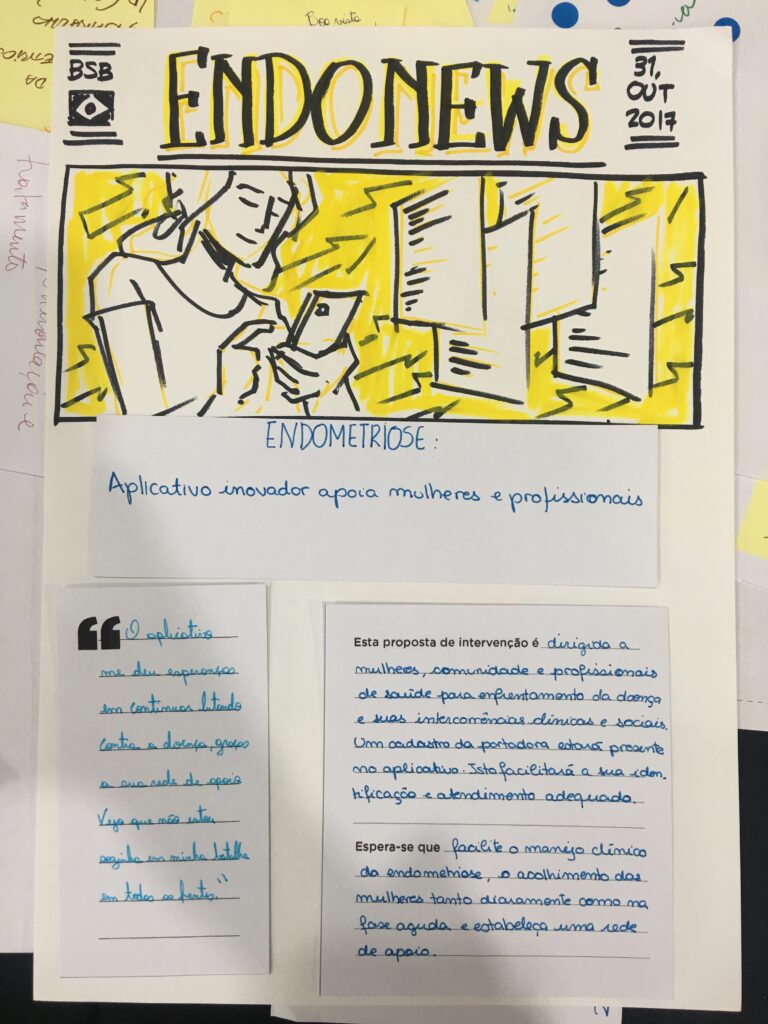 Boa vista
BSB
ENDONEWS
31,
OUT
2017
ENDOMETRIOSE:
Aplicativo inovador apoia mulheres e profissionais
“ O aplicativo
me deu esperanças
em continuar lutando
contra a doença, graças
a sua rede de apoio
Vejo que não estou
sozinha em minha batalha
em todas as frentes.”
Esta proposta de intervenção é dirigida a
mulheres, comunidade e profissionais
de saúde para enfrentamento da doença
e suas intercorrências clínicas e sociais.
Um cadastro da portadora estará presente
no aplicativo. Isto facilitará a sua iden-
tificação e atendimento adequado.
Espera-se que facilite o manejo clínico
da endometriose, o acolhimento das
mulheres tanto diariamente como na
fase aguda e estabeleça uma rede
de apoio.
tratamento